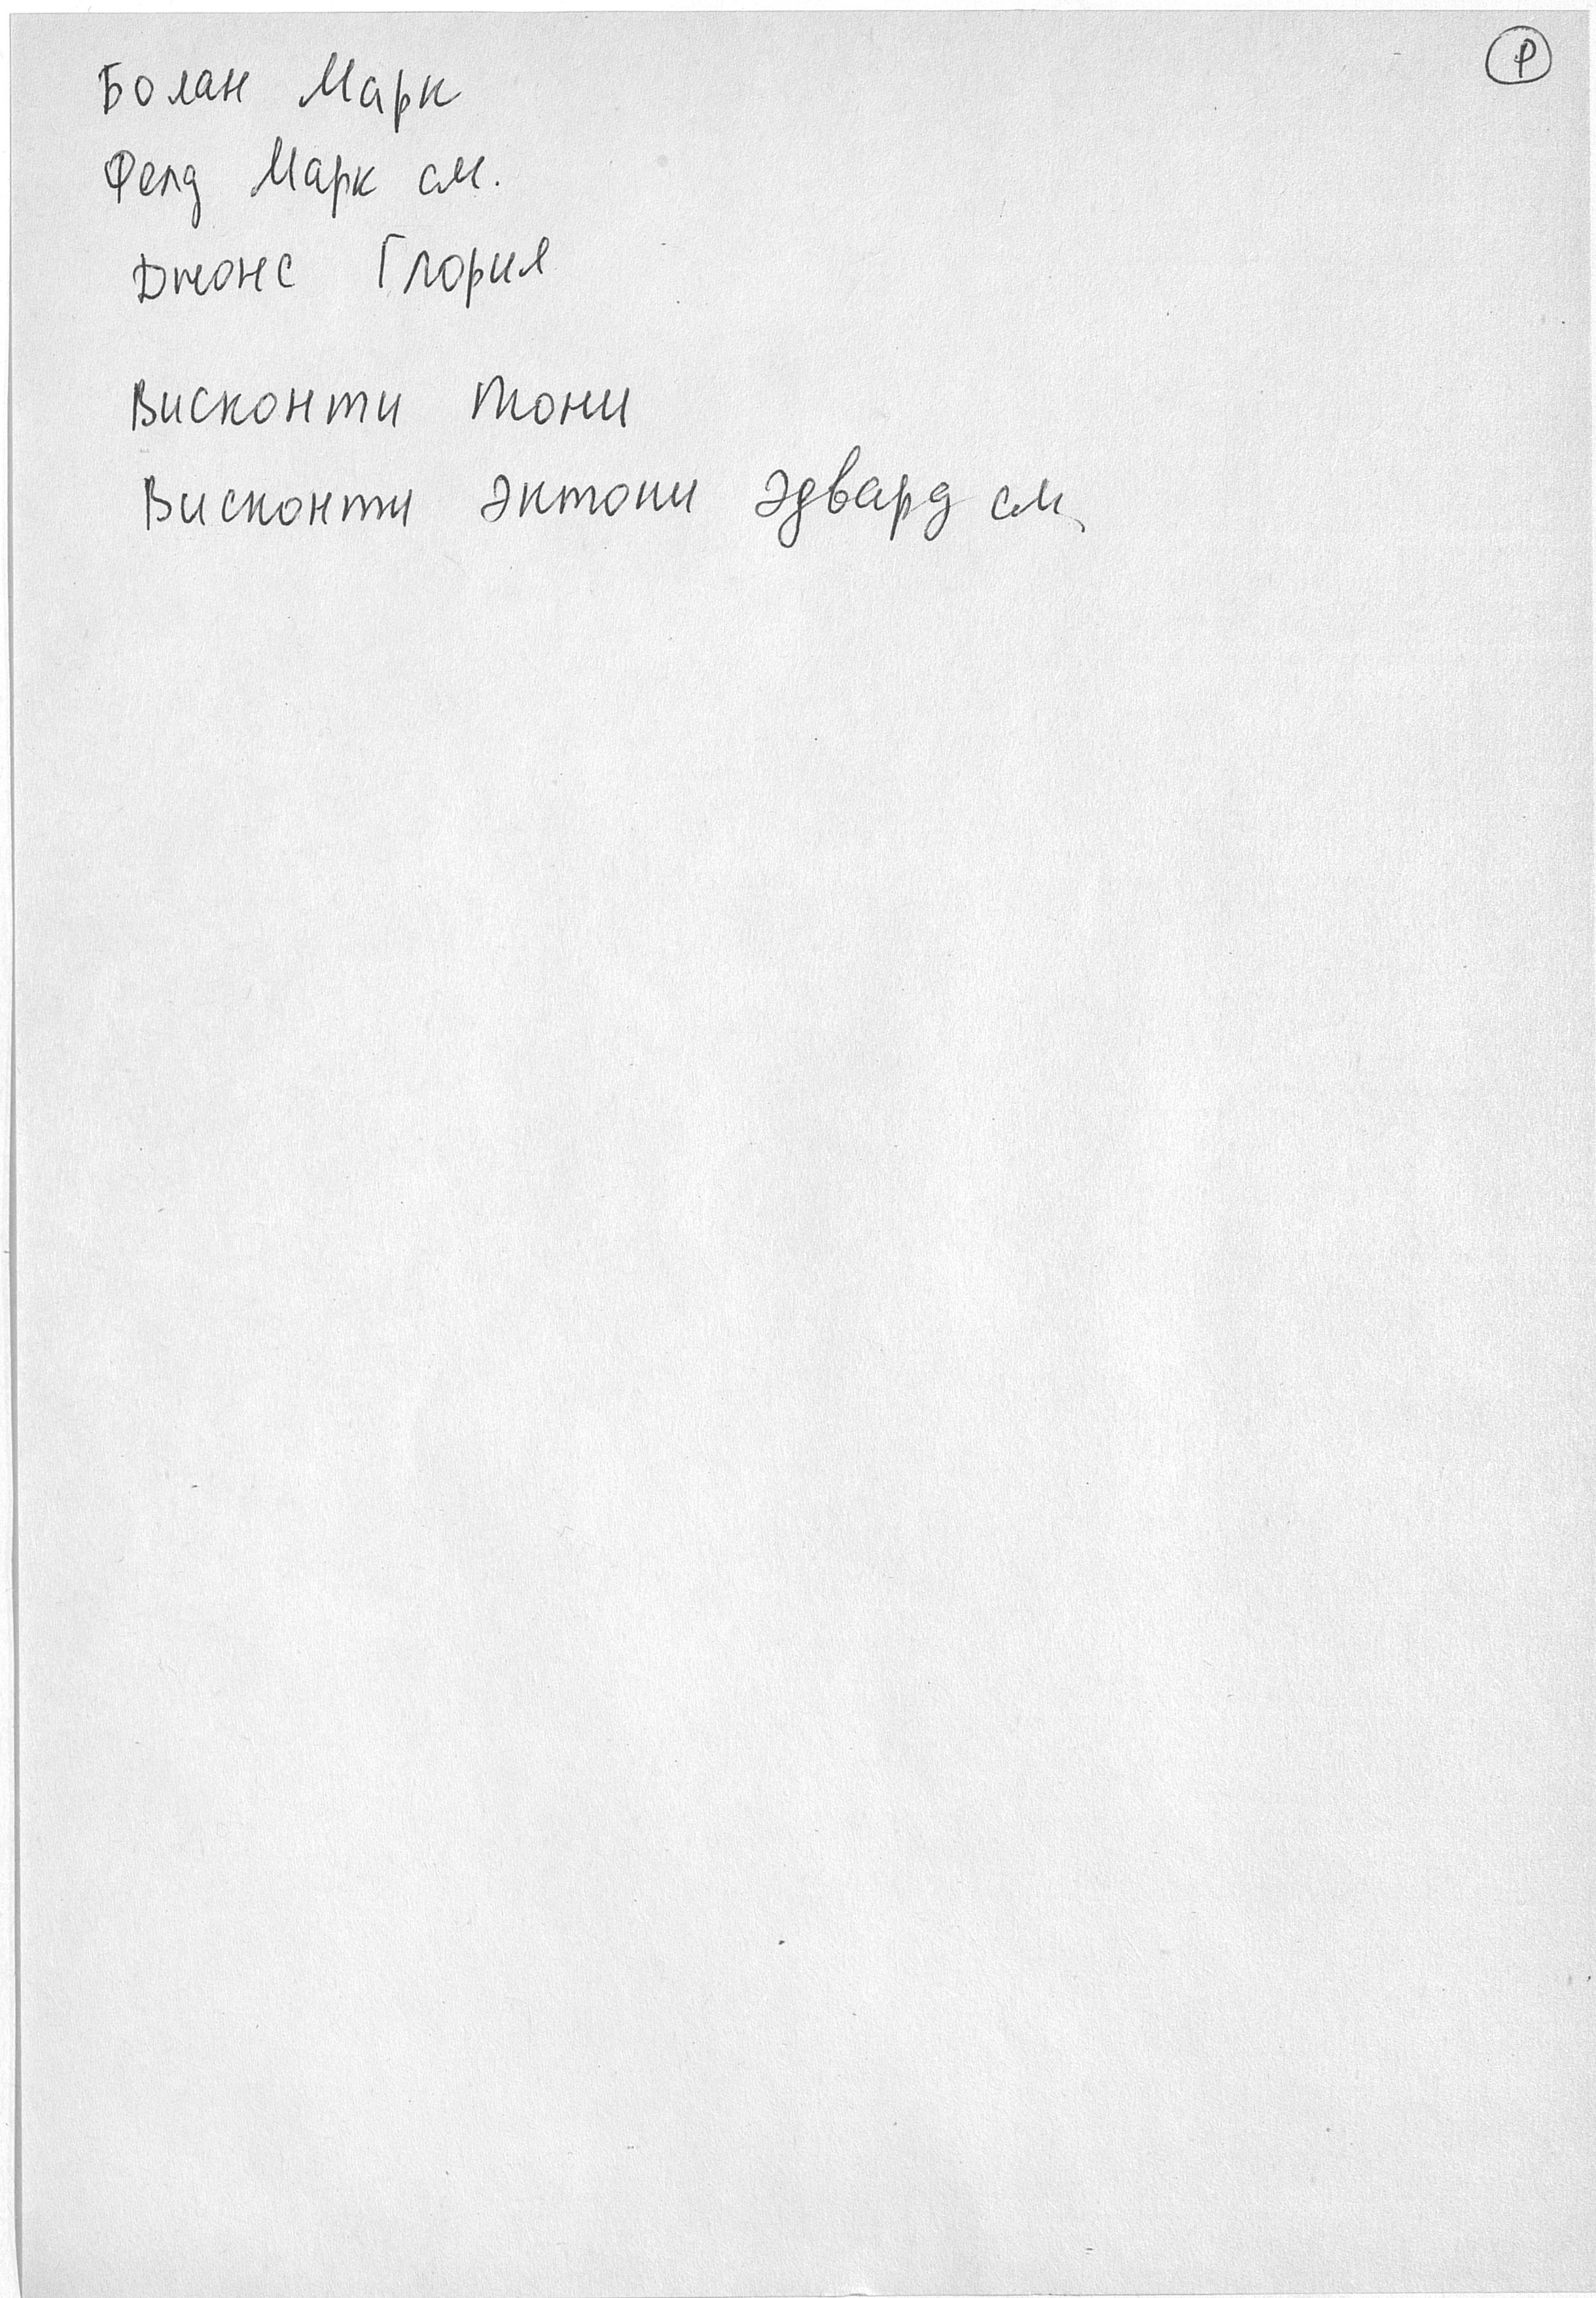 Р
Болан Марк
Фелд Марк см.
Джонс Глория
Висконти Тони
Висконти Энтони Эдвард см.